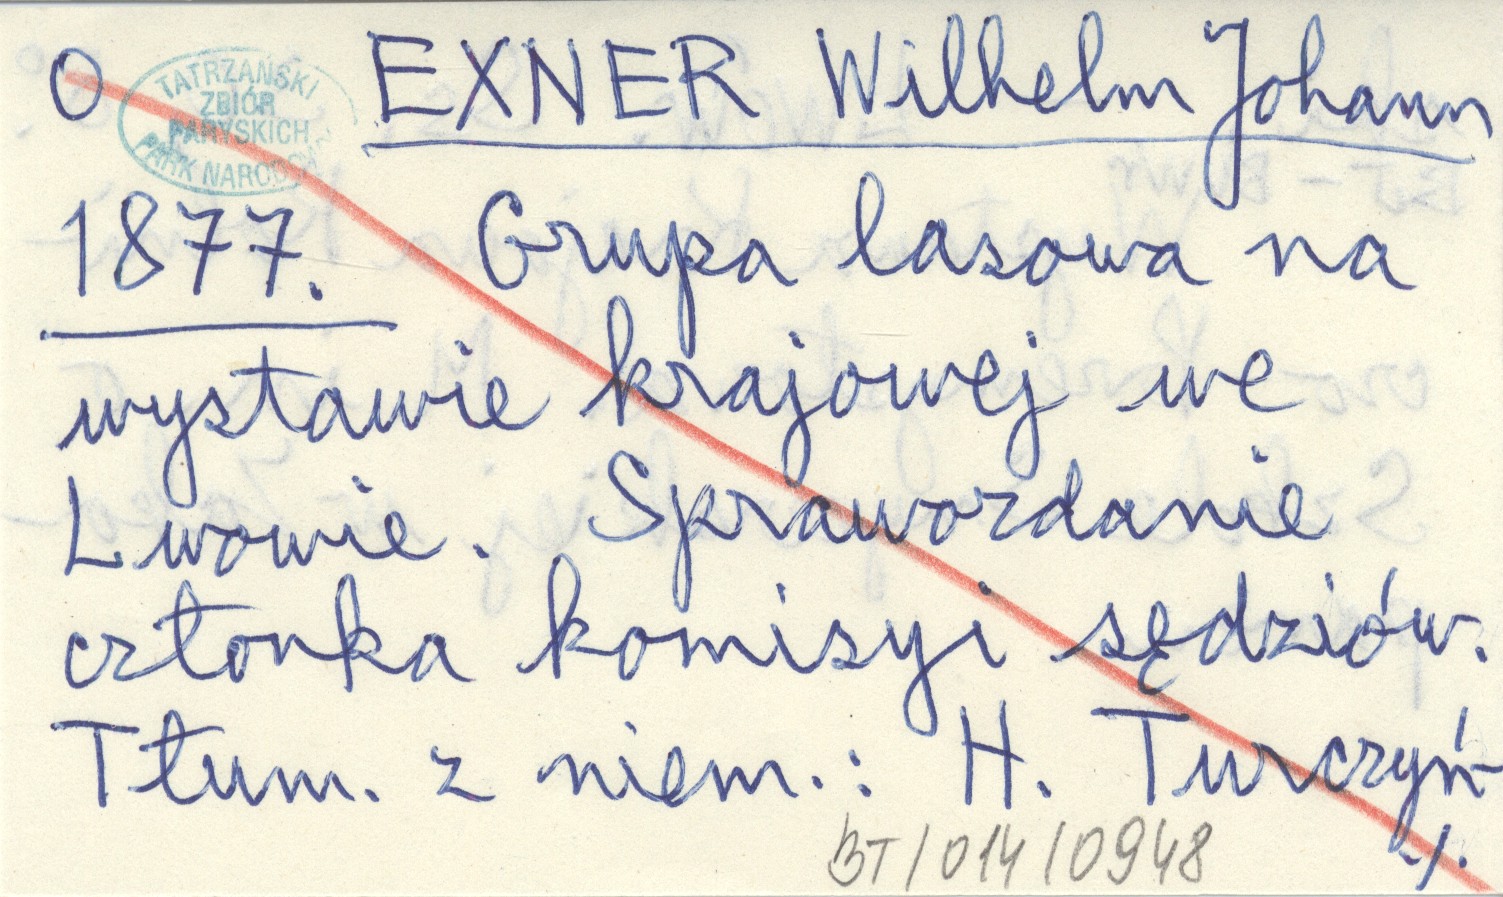 O EXNER Wilhelm Johann
TATRZAŃSKI
ZBIÓR
PARYSKICH
PARK NARODOWY
1877. Grupa lasowa na
wystawie krajowej we
Lwowie. Sprawozdanie
członka komisyi sędziów.
Tłum. z niem.: H. Turczyń-
./.
BT/014/0948